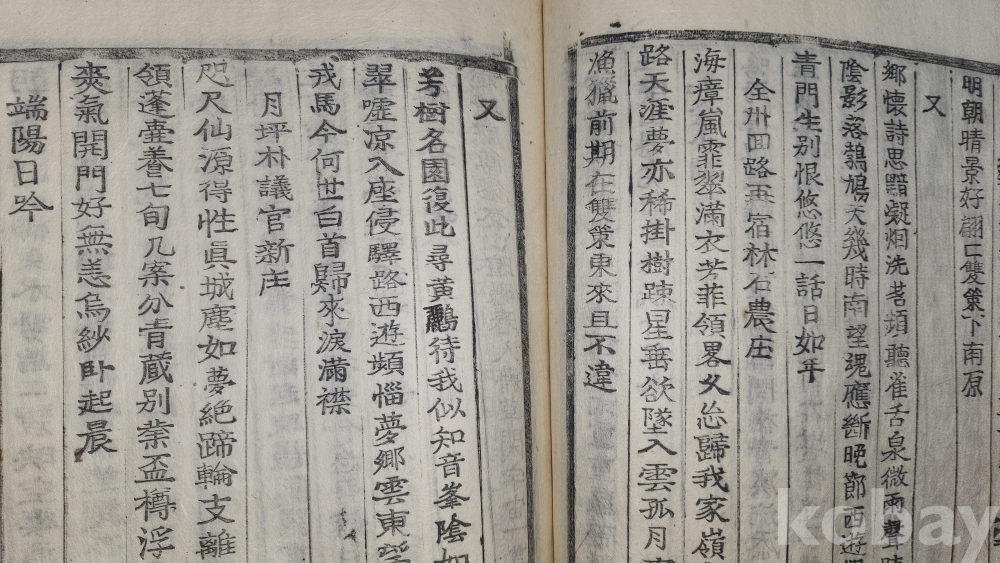 明朝晴景好翩〻雙策下南原
又
鄉懷詩思黯凝烟洗茗頻聽雀舌泉微雨聲時
陰影落鵓鳩天幾時南望魂應斷晩節西遊
青門生別恨悠悠一話日如年
全州回路再宿林石農庄
海瘴嵐霏翠滿衣芳菲領畧久忘歸我家嶺
路天涯夢亦稀掛樹踈星垂欲墜入雲孤月
漁獵前期在雙策東來且不違
又
芳樹名園復此尋黃鸝待我似知音峯陰如
翠嘘凉入座侵驛路西遊頻惱夢鄉雲東望
戎馬今何世白首歸來淚滿襟
月坪朴議官新庄
咫尺仙源得性眞城塵如夢絶蹄輪支離
領蓬壺養七旬几案分青蕆別業盃樽浮
爽氣開門好無恙烏紗卧起晨
端陽日吟
kobay